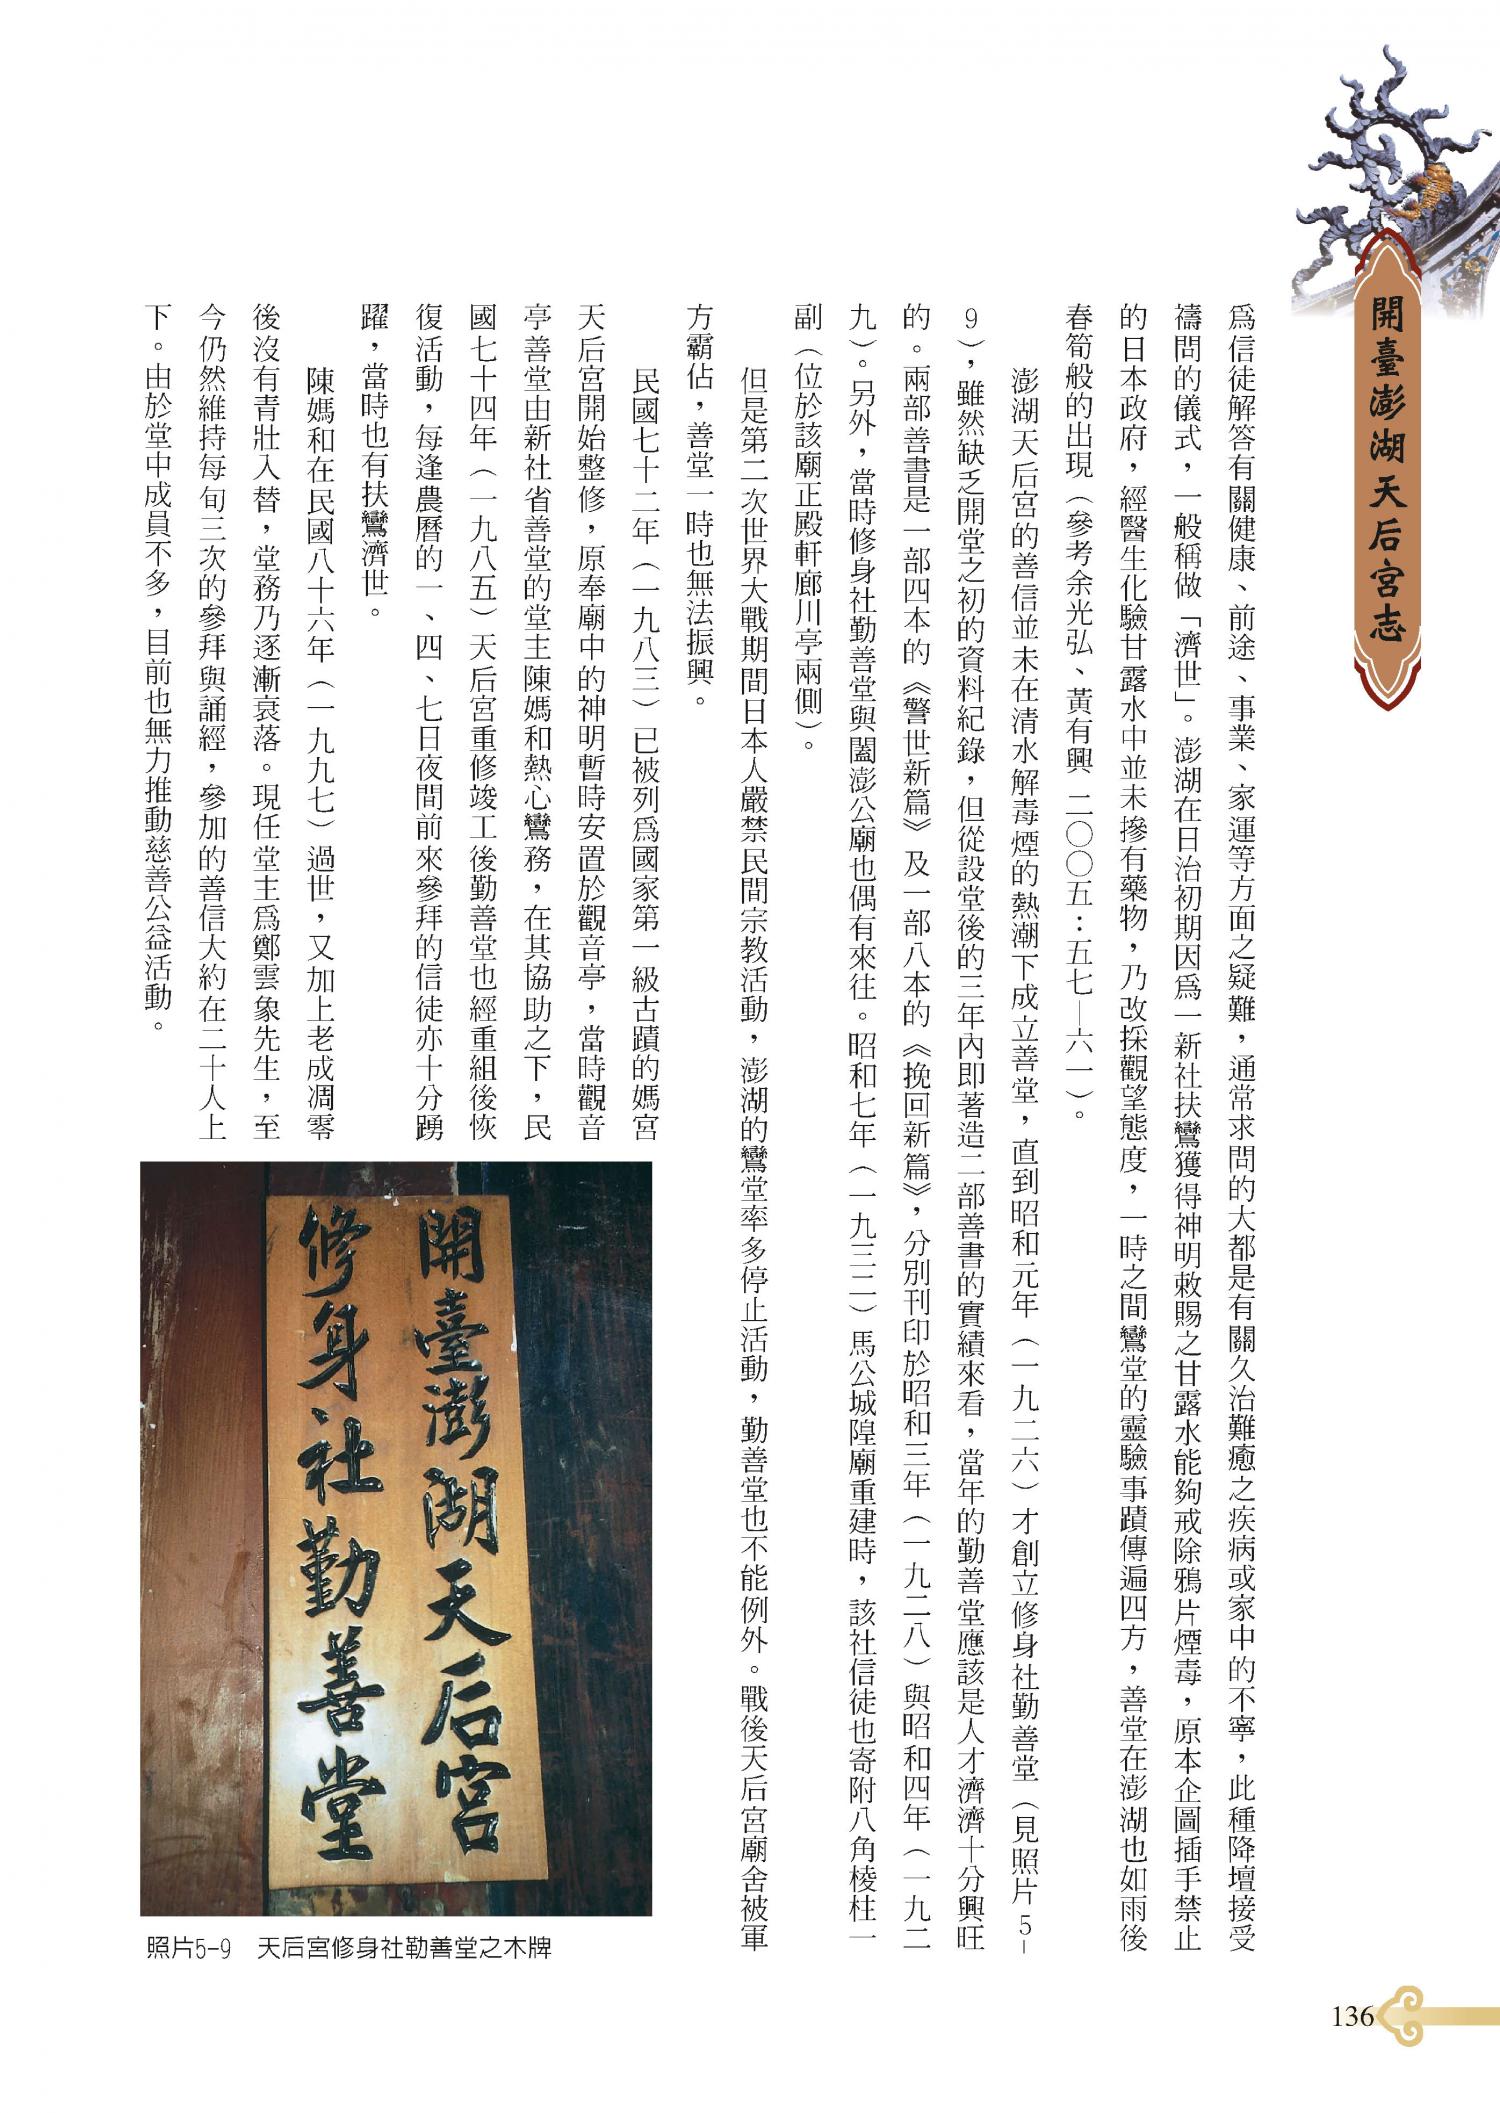 開臺澎湖天后宮志
為信徒解答有關健康、前途、事業、家運等方面之疑難，通常求問的大都是有關久治難癒之疾病或家中的不寧，此種降壇接受
禱問的儀式，一般稱做「濟世」。澎湖在日治初期因為一新社扶鸞獲得神明敕賜之甘露水能夠戒除鴉片煙毒，原本企圖插手禁止
的日本政府，經醫生化驗甘露水中並未摻有藥物，乃改採觀望態度，一時之間鸞堂的靈驗事蹟傳遍四方，善堂在澎湖也如雨後
春筍般的出現（參考余光弘、黃有興 二〇〇五：五七—六一）。
澎湖天后宮的善信並未在清水解毒煙的熱潮下成立善堂，直到昭和元年（一九二六）才創立修身社勤善堂（見照片5-
9），雖然缺乏開堂之初的資料紀錄，但從設堂後的三年內即著造二部善書的實績來看，當年的勤善堂應該是人才濟濟十分興旺
的。兩部善書是一部四本的《警世新篇》及一部八本的《挽回新篇》，分別刊印於昭和三年（一九二八）與昭和四年（一九二
九）。另外，當時修身社勤善堂與闔澎公廟也偶有來往。昭和七年（一九三二）馬公城隍廟重建時，該社信徒也寄附八角棱柱一
副（位於該廟正殿軒廊川亭兩側）。
但是第二次世界大戰期間日本人嚴禁民間宗教活動，澎湖的鸞堂率多停止活動，勤善堂也不能例外。戰後天后宮廟舍被軍
方霸佔，善堂一時也無法振興。
民國七十二年（一九八三）已被列為國家第一級古蹟的媽宮
天后宮開始整修，原奉廟中的神明暫時安置於觀音亭，當時觀音
亭善堂由新社省善堂的堂主陳媽和熱心鸞務，在其協助之下，民
國七十四年（一九八五）天后宮重修竣工後勤善堂也經重組後恢
復活動，每逢農曆的一、四、七日夜間前來參拜的信徒亦十分踴
躍，當時也有扶鸞濟世。
陳媽和在民國八十六年（一九九七）過世，又加上老成凋零
後沒有青壯入替，堂務乃逐漸衰落。現任堂主為鄭雲象先生，至
今仍然維持每旬三次的參拜與誦經，參加的善信大約在二十人上
下。由於堂中成員不多，目前也無力推動慈善公益活動。
開臺澎湖天后宮
修身社勤善堂
照片5-9 天后宮修身社勤善堂之木牌
136